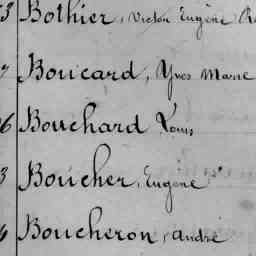 3 Bothier, Victor Eugène
Boucard, Yves Marie
6 Bouchard Louis
3 Boucher, Eugène
Boucheron, André